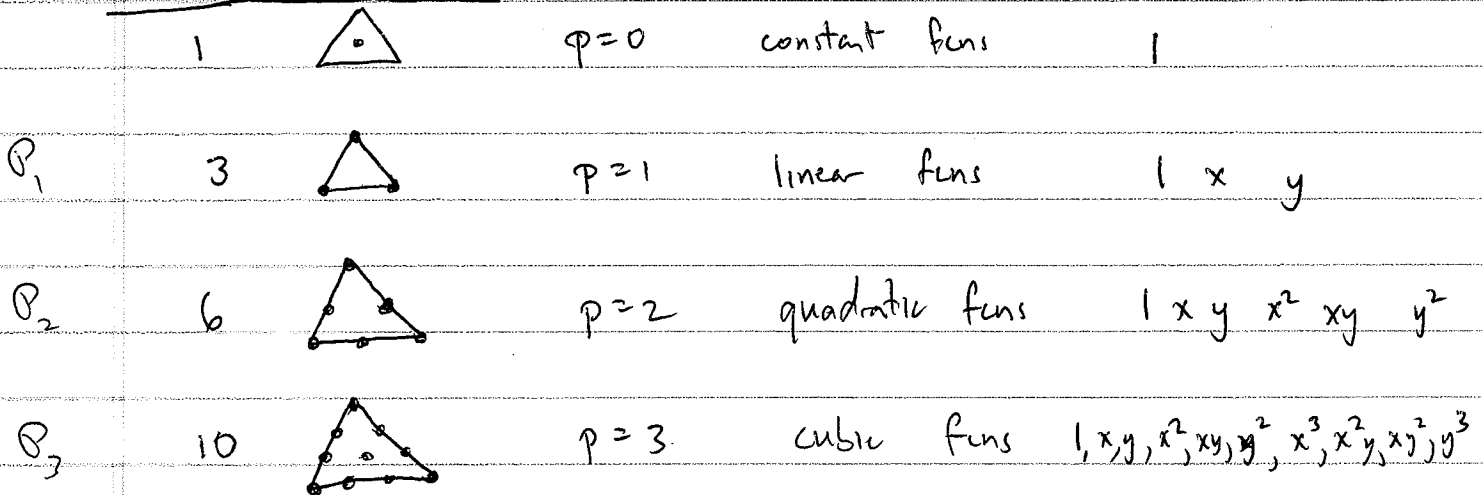 1 p=0 constant fcns 1
P₁ 3 p=1 linear fcns 1 x y
P₂ 6 p=2 quadratic fcns 1 x y x² xy y²
P₃ 10 p=3. cubic fcns 1, x, y, x², xy, y², x³, x²y, xy², y³